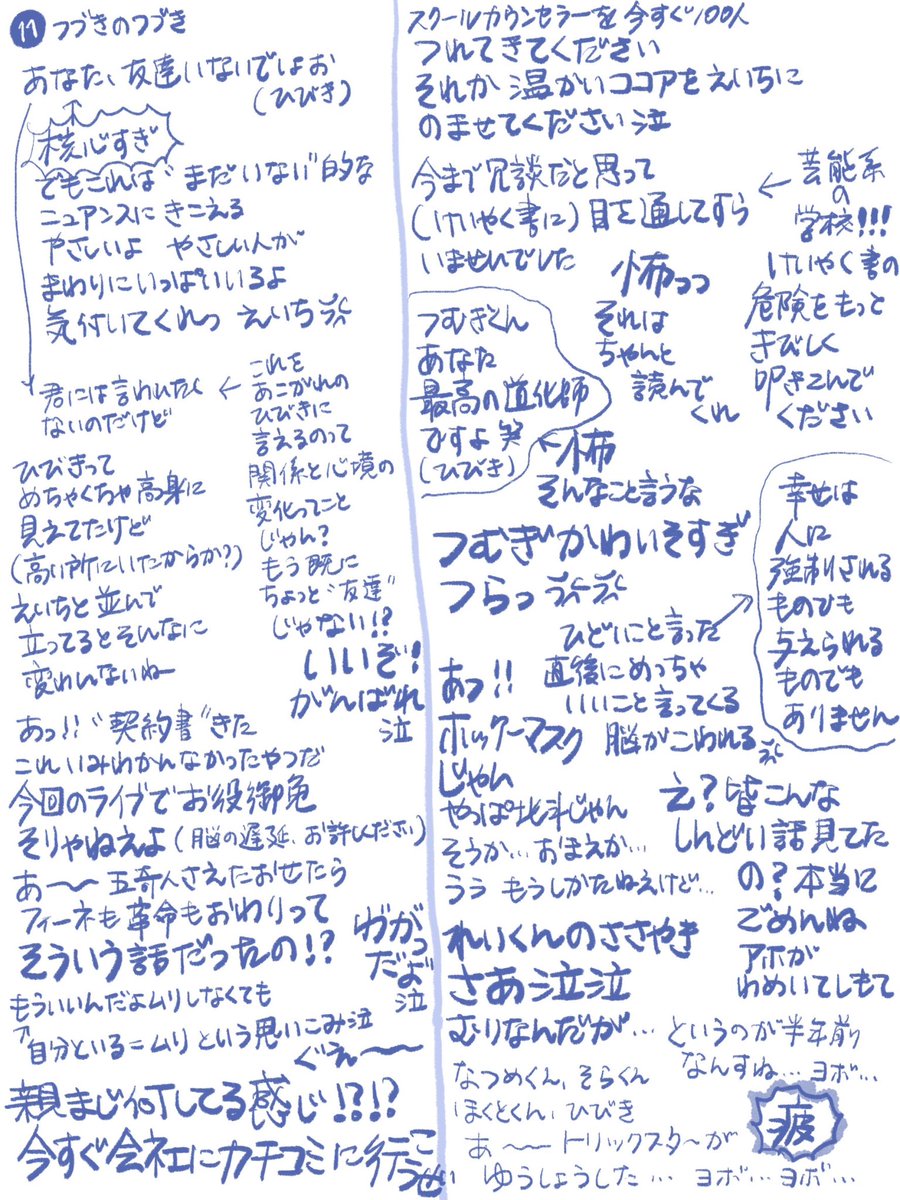 11 つづきのつづき
あなた、友達いないでしょお
(ひびき)
核心すぎ
でもこれは"まだいない"的な
ニュアンスにきこえる
やさしいよ やさしい人が
まわりにいっぱいいるよ
気付いてくれっ えいち泣
君には言われたく
ないのだけど
←これを
あこがれの
ひびきに
言えるのって
関係と心境の
変化ってこと
じゃん?
もう既に
ちょっと"友達"
じゃない!?
いいぞ!
がんばれ
泣
ひびきって
めちゃくちゃ高身に
見えてたけど
(高い所にいたからか?)
えいちと並んで
立ってるとそんなに
変わんないねー
あっ!!"契約書"きた
これいみわかんなかったやつだ
今回のライブでお役御免
そりゃねえよ(脳の遅延、お許しください)
あ〜〜五奇人さえたおせたら
フィーネも革命もおわりって
そういう話だったの!?
やだよ
泣
もういいんだよムリしなくても
↑自分といる=ムリという思いこみ泣
ぐえ〜〜
親まじ何してる感じ!?!?
今すぐ会社にカチコミに行こうぜい
スクールカウンセラーを今すぐ100人
つれてきてください
それか温かいココアをえいちに
のませてください泣
今まで冗談だと思って
(けいやく書に)目を通してすら
いませんでした
←芸能系
の
学校!!!
けいやく書の
危険をもっと
きびしく
叩きこんで
ください
怖っっ
それは
ちゃんと
読んで
くれ
つむぎくん
あなた
最高の道化師
ですよ笑
(ひびき)
←怖
そんなこと言うな
つむぎかわいそすぎ
つらっ泣泣
ひどいこと言った
直後にめっちゃ
いいこと言ってくる
脳がこわれる泣
幸せは
人に
強制される
ものでも
与えられる
ものでも
ありません
あっ!!
ホッケーマスク
じゃん
やっぱ北斗じゃん
そうか…おまえか…
うう もうしかたねえけど…
え?皆こんな
しんどい話見てた
の?本当に
ごめんね
アホが
わめいてしもて
れいくんのささやき
さあ泣泣
むりなんだが…
というのが半年前
なんすね…ヨボ…
なつめくん、そらくん
ほくとくん、ひびき
あ〜〜トリックスターが
ゆうしょうした…ヨボ…ヨボ…
疲